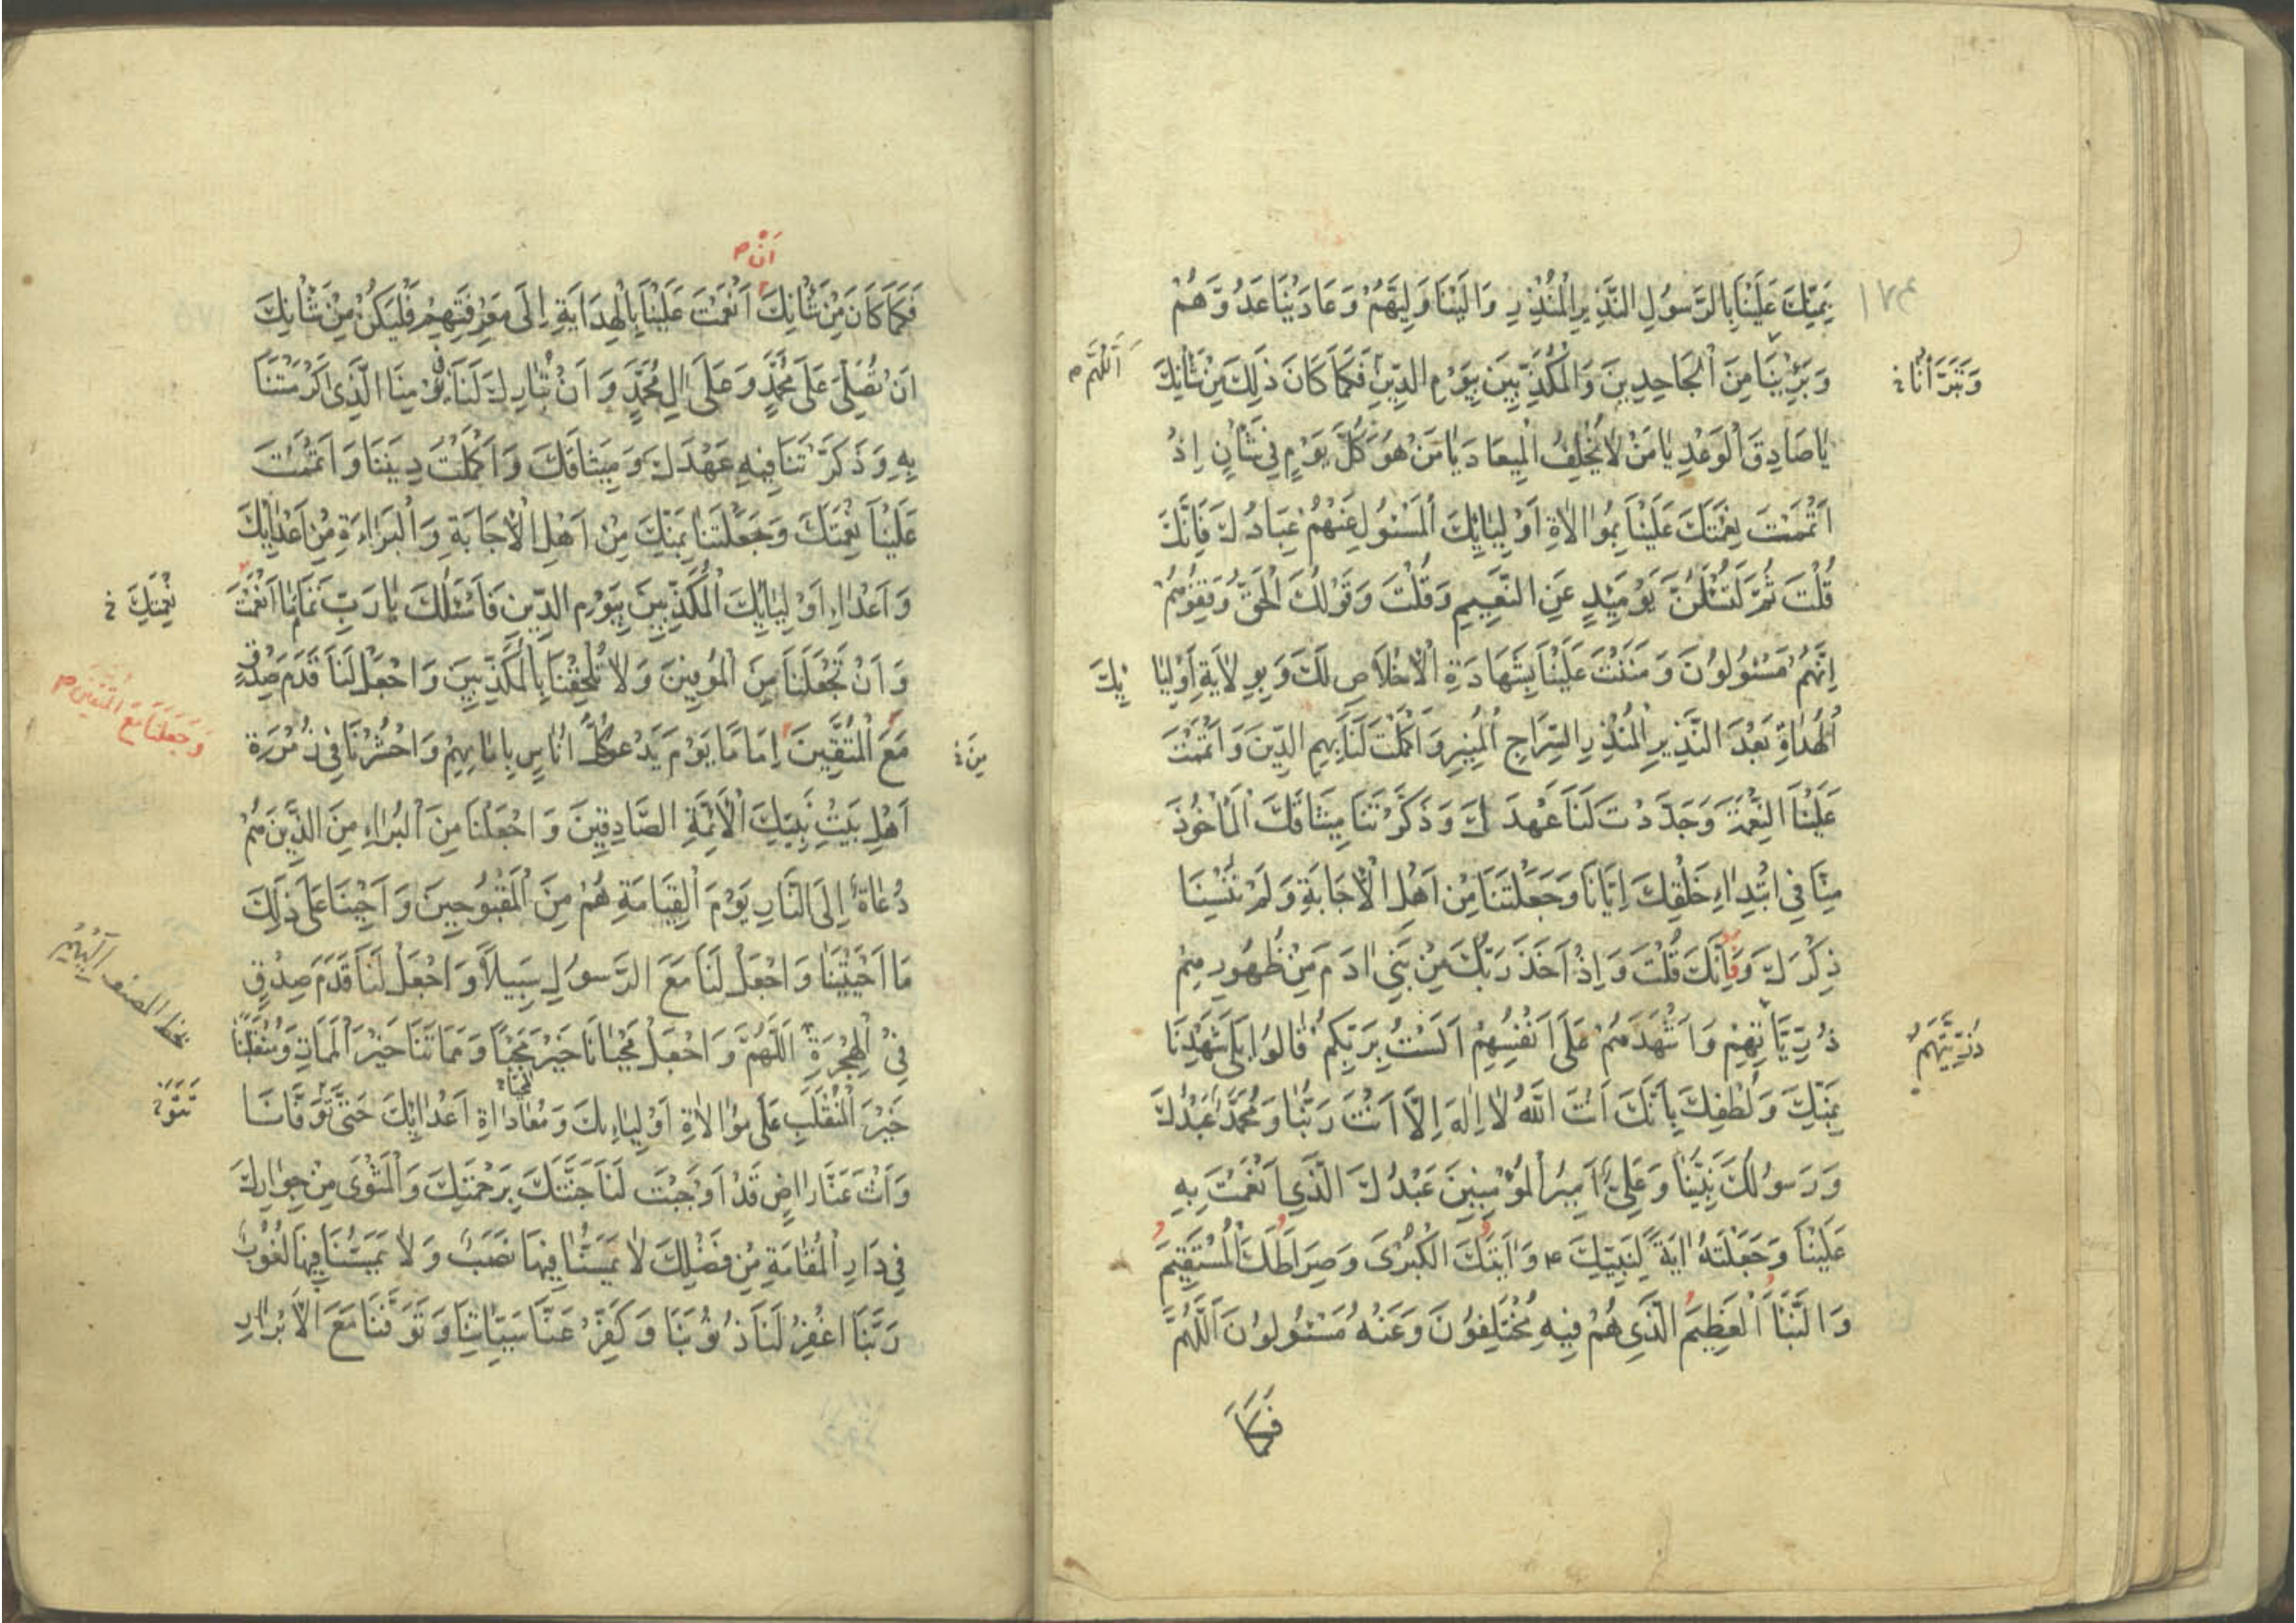 بِمَنِّكَ عَلَيْنَا بِالرَّسُولِ النَّذِيرِ الْمُنْذِرِ وَالَيْنَا وَلِيَّهُمْ وَعَادَيْنَا عَدُوَّهُمْ
١٧٤
وَبَرِئْنَا مِنَ الْجَاحِدِينَ وَالْمُكَذِّبِينَ بِيَوْمِ الدِّينِ فَكَمَا كَانَ ذَلِكَ مِنْ شَأْنِكَ
وَتَبَرَّأْنَا
اَللّهُمَّ
يَا صَادِقَ الْوَعْدِ يَا مَنْ لَا يُخْلِفُ الْمِيعَادَ يَا مَنْ هُوَ كُلَّ يَوْمٍ فِي شَأْنٍ اِذْ
اَتْمَمْتَ نِعْمَتَكَ عَلَيْنَا بِمُوَالَاةِ اَوْلِيَائِكَ الْمَسْئُولِ عَنْهُمْ عِبَادُكَ فَاِنَّكَ
قُلْتَ ثُمَّ لَتُسْئَلُنَّ يَوْمَئِذٍ عَنِ النَّعِيمِ وَقُلْتَ وَقَوْلُكَ الْحَقُّ وَقِفُوهُمْ
اِنَّهُمْ مَسْئُولُونَ وَمَنَنْتَ عَلَيْنَا بِشَهَادَةِ الْاِخْلَاصِ لَكَ وَبِوِلَايَةِ اَوْلِيَا ئِكَ
الْهُدَاةِ بَعْدَ النَّذِيرِ الْمُنْذِرِ السِّرَاجِ الْمُنِيرِ وَاَكْمَلْتَ لَنَا بِهِمِ الدِّينَ وَاَتْمَمْتَ
عَلَيْنَا النِّعْمَةَ وَجَدَّدْتَ لَنَا عَهْدَكَ وَذَكَّرْتَنَا مِيثَاقَكَ الْمَاْخُوذَ
مِنَّا فِي ابْتِدَاءِ خَلْقِكَ اِيَّانَا وَجَعَلْتَنَا مِنْ اَهْلِ الْاِجَابَةِ وَلَمْ تُنْسِنَا
ذِكْرَكَ وَفَاِنَّكَ قُلْتَ وَاِذْ اَخَذَ رَبُّكَ مِنْ بَنِي ادَمَ مِنْ ظُهُورِهِمْ
ذُرِّيَّاتِهِمْ وَاَشْهَدَهُمْ عَلَى اَنْفُسِهِمْ اَلَسْتُ بِرَبِّكُمْ قَالُوا بَلَى شَهِدْنَا
ذُرِّيَّتَهُمْ
بِمَنِّكَ وَلُطْفِكَ بِاَنَّكَ اَنْتَ اللّهُ لَا اِلَهَ اِلَّا اَنْتَ رَبُّنَا وَمُحَمَّدٌ عَبْدُكَ
وَرَسُولُكَ نَبِيُّنَا وَعَلِيٌّ اَمِيرُ الْمُؤْمِنِينَ عَبْدُكَ الَّذِي اَنْعَمْتَ بِهِ
عَلَيْنَا وَجَعَلْتَهُ ايَةً لِنَبِيِّكَ ع وَايَتَكَ الْكُبْرَى وَصِرَاطَكَ الْمُسْتَقِيمَ
وَالنَّبَاَ الْعَظِيمَ الَّذِي هُمْ فِيهِ مُخْتَلِفُونَ وَعَنْهُ مَسْئُولُونَ اَللّهُمَّ
فَكَمَا
اَنْ
فَكَمَا كَانَ مِنْ شَأْنِكَ اَنْعَمْتَ عَلَيْنَا بِالْهِدَايَةِ اِلَى مَعْرِفَتِهِمْ فَلْيَكُنْ مِنْ شَأْنِكَ
اَنْ تُصَلِّيَ عَلَى مُحَمَّدٍ وَعَلَى الِ مُحَمَّدٍ وَاَنْ تُبَارِكَ لَنَا فِي يَوْمِنَا الَّذِي اَكْرَمْتَنَا
بِهِ وَذَكَّرْتَنَا فِيهِ عَهْدَكَ وَمِيثَاقَكَ وَاَكْمَلْتَ دِينَنَا وَاَتْمَمْتَ
عَلَيْنَا نِعْمَتَكَ وَجَعَلْتَنَا بِمَنِّكَ مِنْ اَهْلِ الْاِجَابَةِ وَالْبَرَاءَةِ مِنْ اَعْدَائِكَ
وَاَعْدَاءِ اَوْلِيَائِكَ الْمُكَذِّبِينَ بِيَوْمِ الدِّينِ فَاَسْئَلُكَ يَا رَبِّ تَمَامَ مَا اَنْعَمْتَ
نِعْمَتِكَ
وَاَنْ تَجْعَلَنَا مِنَ الْمُوفِينَ وَلَا تُلْحِقْنَا بِالْمُكَذِّبِينَ وَاجْعَلْ لَنَا قَدَمَ صِدْقٍ
مَعَ الْمُتَّقِينَ اِمَامًا يَوْمَ يَدْعُو كُلَّ اُنَاسٍ بِاِمَامِهِمْ وَاحْشُرْنَا فِي زُمْرَةِ
وَجَعَلَنَا مَعَ الْمُتَّقِينَ
مِنَ
اَهْلِ بَيْتِ نَبِيِّكَ الْاَئِمَّةِ الصَّادِقِينَ وَاجْعَلْنَا مِنَ الْبُرَاءِ مِنَ الَّذِينَ هُمْ
دُعَاةٌ اِلَى النَّارِ يَوْمَ الْقِيَامَةِ هُمْ مِنَ الْمَقْبُوحِينَ وَاَحْيِنَا عَلَى ذَلِكَ
مَا اَحْيَيْتَنَا وَاجْعَلْ لَنَا مَعَ الرَّسُولِ سَبِيلًا وَاجْعَلْ لَنَا قَدَمَ صِدْقٍ
بخط المصنف
فِي الْهِجْرَةِ اَللّهُمَّ وَاجْعَلْ مَحْيَانَا خَيْرَ مَحْيًا وَمَمَاتَنَا خَيْرَ الْمَمَاتِ وَمُنْقَلَبَنَا
خَيْرَ الْمُنْقَلَبِ عَلَى مُوَالَاةِ اَوْلِيَاءِكَ وَمُعَادَاةِ اَعْدَائِكَ حَتَّى تَوَفَّانَا
وَاَنْتَ عَنَّا رَاضٍ قَدْ اَوْجَبْتَ لَنَا جَنَّتَكَ بِرَحْمَتِكَ وَالْمَثْوَى مِنْ جِوَارِكَ
فِي دَارِ الْمُقَامَةِ مِنْ فَضْلِكَ لَا يَمَسُّنَا فِيهَا نَصَبٌ وَلَا يَمَسُّنَا فِيهَا لُغُوبٌ
رَبَّنَا اغْفِرْ لَنَا ذُنُوبَنَا وَكَفِّرْ عَنَّا سَيِّئَاتِنَا وَتَوَفَّنَا مَعَ الْاَبْرَارِ